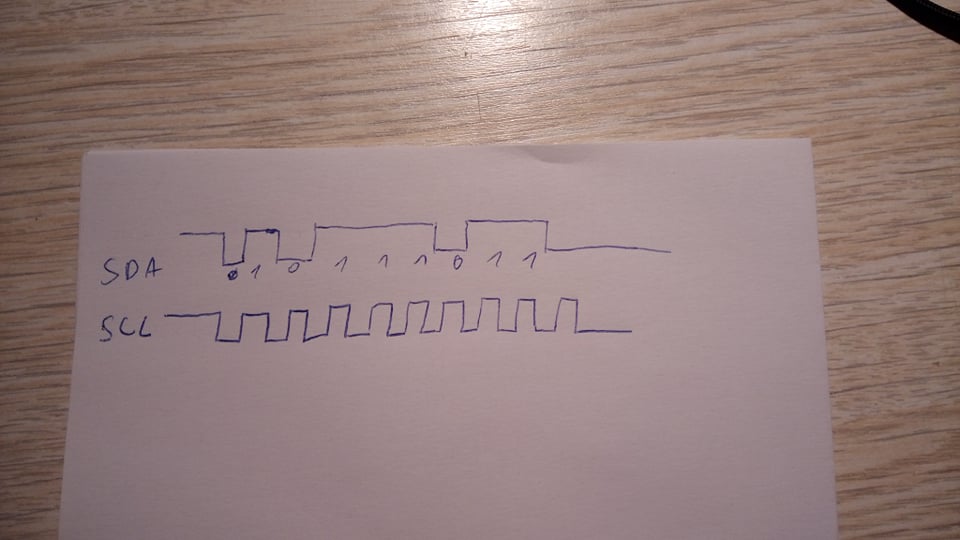 SDA 0 1 0 1 1 1 0 1 1
SCL